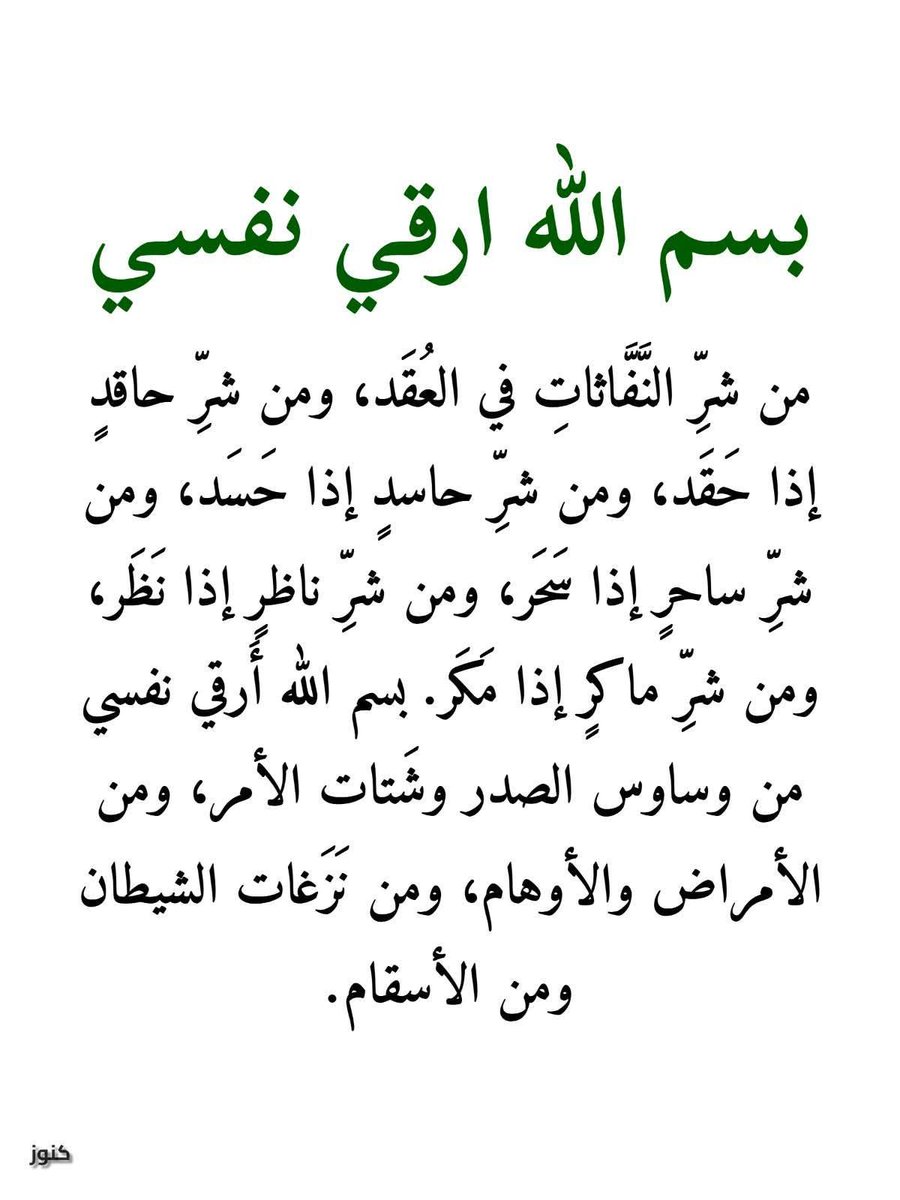 بسم الله ارقي نفسي
من شرِّ النَّفَّاثاتِ في العُقَد، ومن شرِّ حاقدٍ
إذا حَقَد، ومن شرِّ حاسدٍ إذا حَسَد، ومن
شرِّ ساحرٍ إذا سَحَر، ومن شرِّ ناظرٍ إذا نَظَر،
ومن شرِّ ماكرٍ إذا مَكَر. بسم الله أَرقي نفسي
من وساوس الصدر وشَتات الأمر، ومن
الأمراض والأوهام، ومن نَزَغات الشيطان
ومن الأسقام.
كنوز